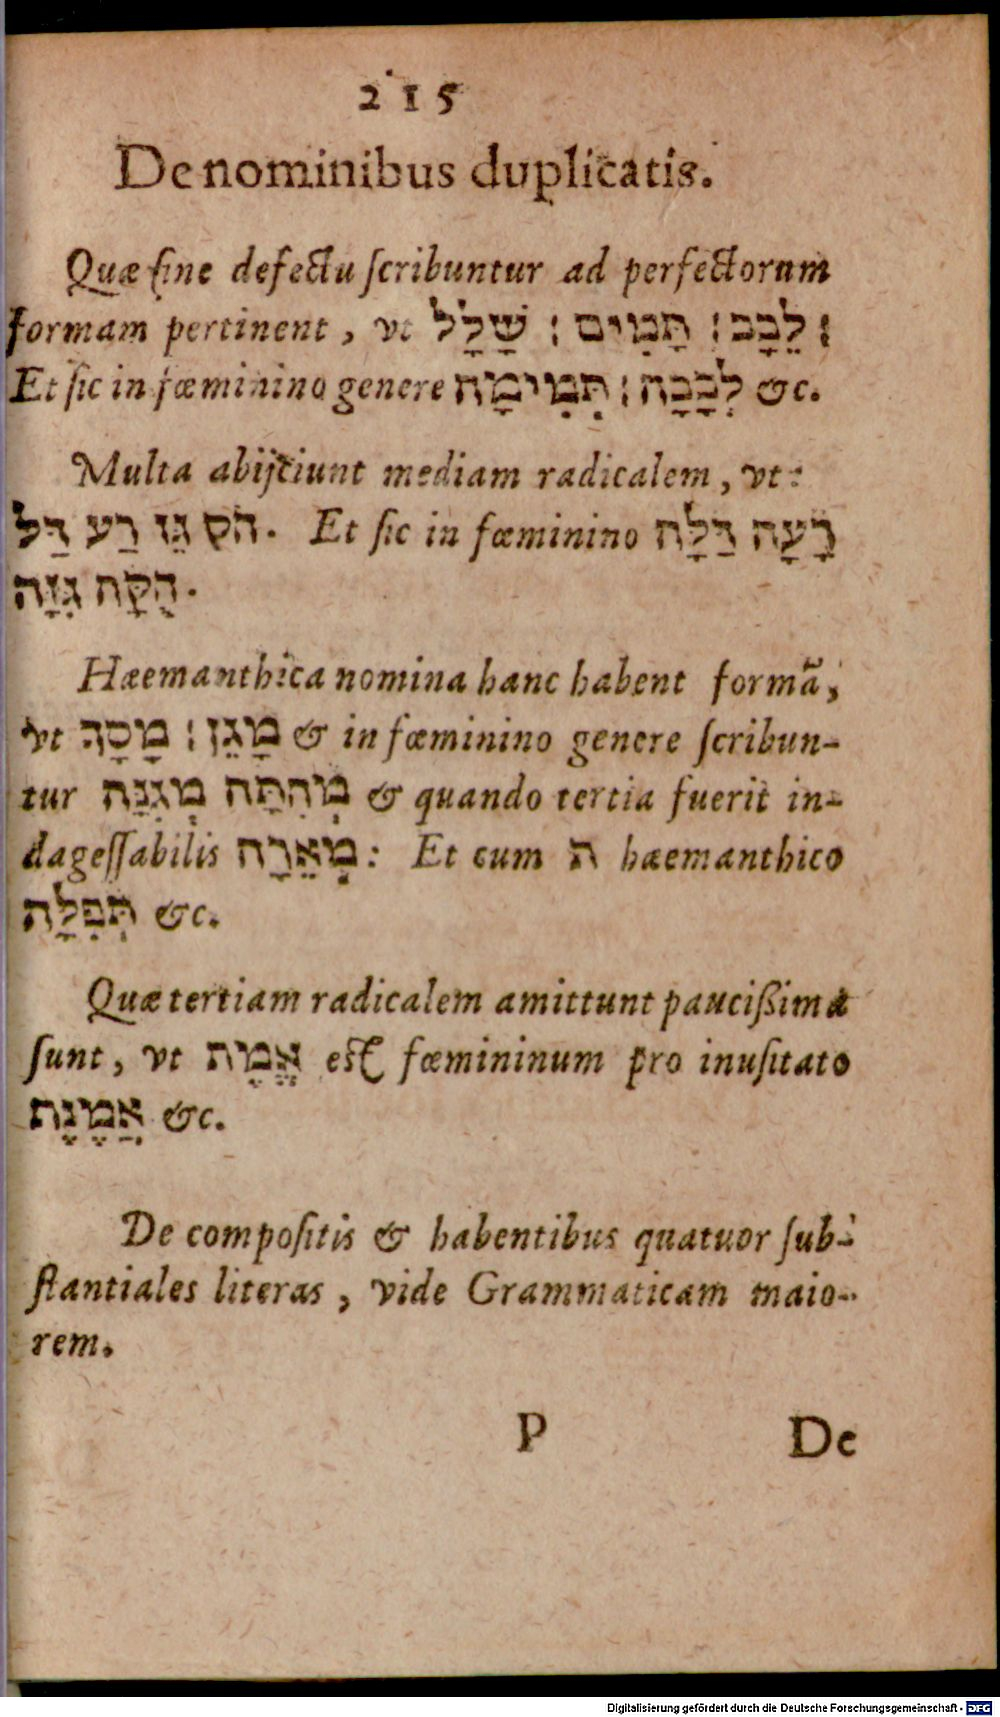 215
De nominibus duplicatis.
Quæ ſine defectu ſcribuntur ad perfectorum
formam pertinent, vt שָׁלָל ׃ תָּמִים ׃ לֵבָב ׃
Et ſic in fœminino genere תְּמִימָה ׃ לְבָבָה &c.
Multa abijciunt mediam radicalem, vt:
דַּל רַע גֵּז חֹק. Et ſic in fœminino דַּלָּה רָעָה
גִּזָּה חֻקָּה.
Hæemanthica nomina hanc habent formã,
vt מָסָךְ ׃ מָגֵן & in fœminino genere ſcribun-
tur מְגִנָּה מְחִתָּה & quando tertia fuerit in-
dageſſabilis מְאֵרָה: Et cum ת haemanthico
תְּפִלָּה &c.
Quæ tertiam radicalem amittunt pauciſſima
ſunt, vt אֱמֶת eſt fœmininum pro inuſitato
אֲמֶנֶת &c.
De compoſitis & habentibus quatuor ſub-
ſtantiales literas, vide Grammaticam maio-
rem.
P De
Digitalisierung gefördert durch die Deutsche Forschungsgemeinschaft - DFG